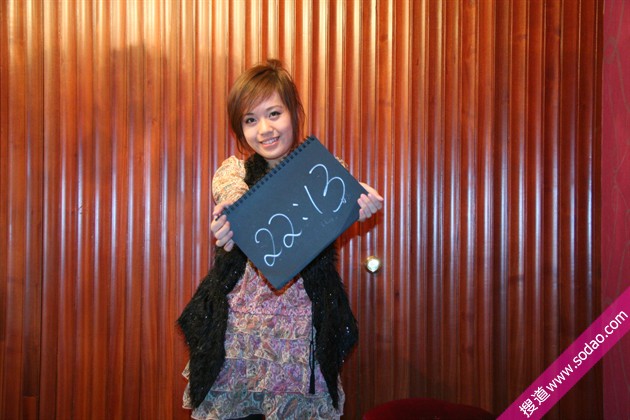 22:13
搜道 www.sodao.com